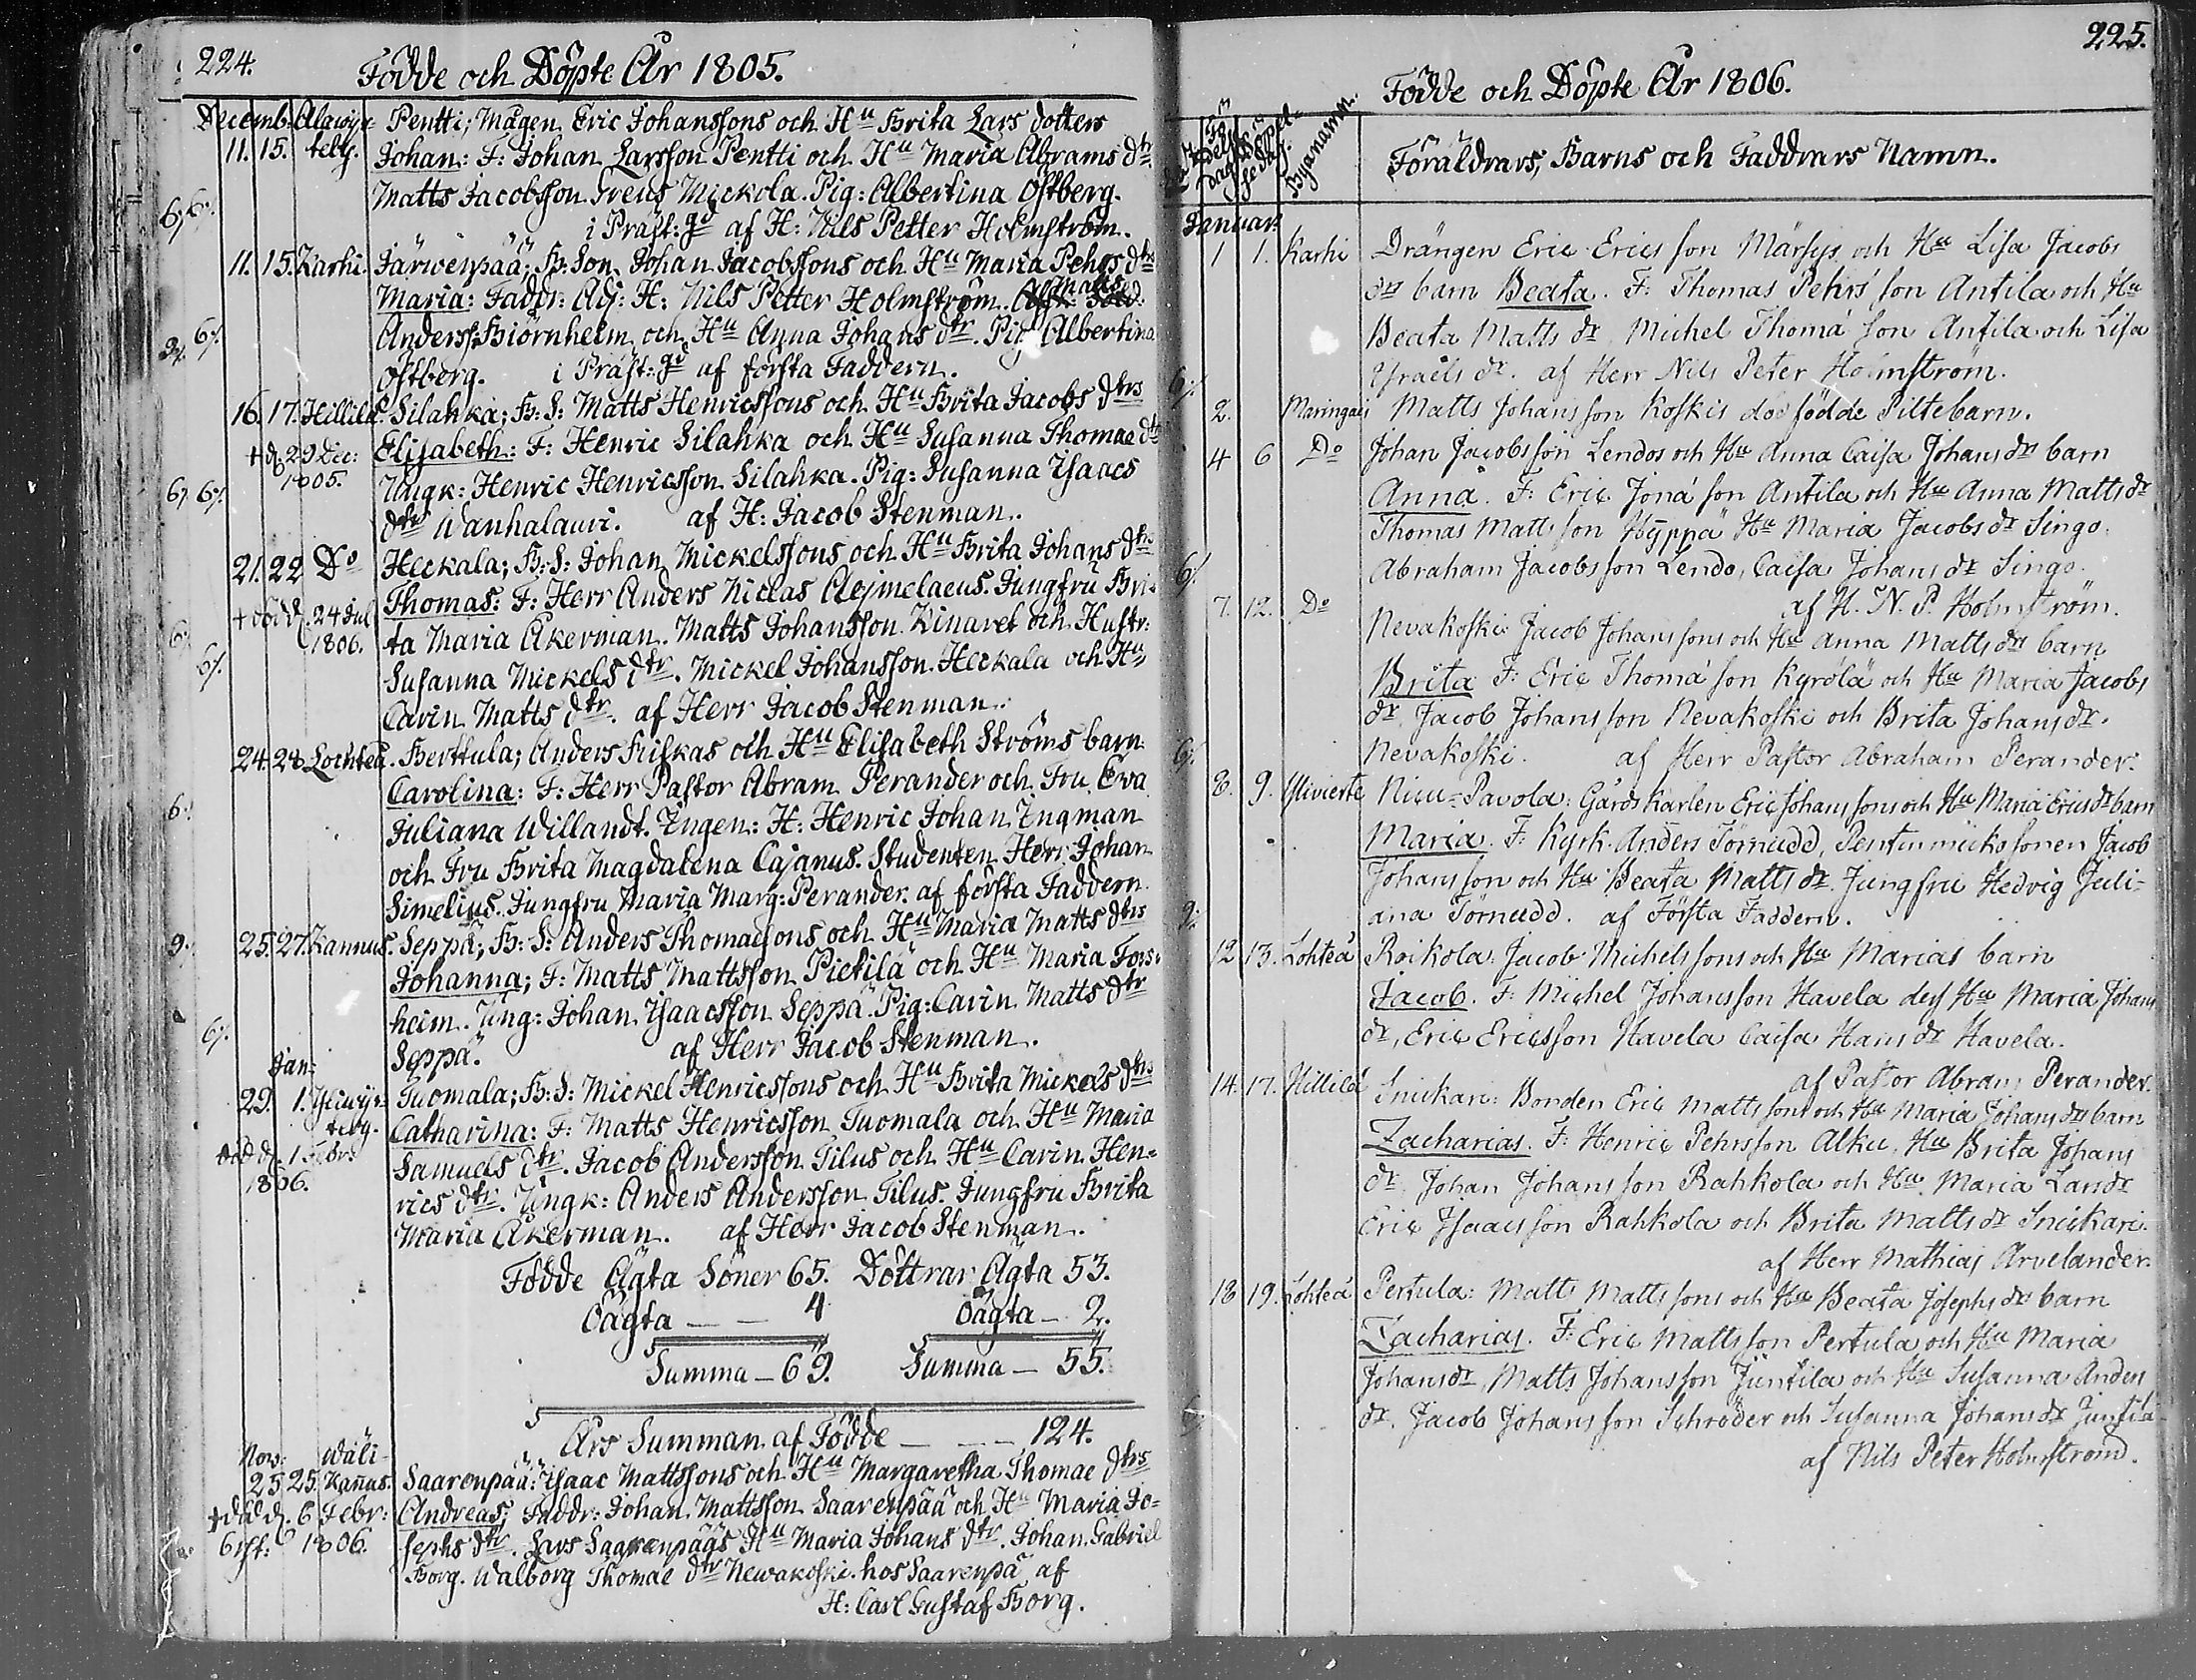 224.
Födde och Döpte År 1805.
Decemb. Alawijr= Pentti; Mågen Eric Johanssons och Hu Brita Lars dotters
11. 15. teby. Johan: F: Johan Larsson Pentti och Hu Maria Abrams dtr.
Matts Jacobsson Mickola. Pig: Albertina Östberg.
i Präst:gd af H: Nils Petter Holmström.
11. 15. Karhi. Järwenpää; B: Son Johan Jacobssons och Hu Maria Pehrs dtrs
Maria: Faddr: Adj: H: Nils Petter Holmström.
Anderss: Biörnhelm och Hu Anna Johans dtr. Pig Albertina
Östberg. i Präst:gd af första Faddern.
16. 17. Hillilä. Silahka; B: S: Matts Henricssons och Hu Brita Jacobs dtrs
† d. 29 Dec: Elisabeth: F: Henric Silahka och Hu Susanna Thomae dtr
1805. Yngk: Henric Henricsson Silahka. Pig: Susanna Isaacs
dtr Wanhalauri. af H: Jacob Stenman.
21. 22 Do Heckala; B: S: Johan Mickelssons och Hu Brita Johans dtrs
† död d. 24 Jul Thomas: F: Herr Anders Niclas Alejmelaeus. Jungfru Bri=
1806. ta Maria Åkerman. Matts Johansson Kinaret och Hustr:
Susanna Mickels dtr. Mickel Johansson Heckala och Hu
Carin Matts dtr. af Herr Jacob Stenman.
24. 28 Lochteå. Berttula; Anders Friskas och Hu Elisabeth Ströms barn
Carolina: F: Herr Pastor Abram Perander och Fru Ewa
Juliana Willandt. Ingen: H: Henric Johan Ingman
och Fru Brita Magdalena Cajanus. Studenten Herr Johan
Simelius. Jungfru Maria Marg: Perander. af första Faddern.
25. 27. Kannus. Seppä; B: S: Anders Thomaesons och Hu Maria Matts dtrs
Johanna; F: Matts Mattsson Pietilä och Hu Maria Fors=
heim. Yng: Johan Isaacsson Seppä. Pig: Carin Matts dtr
Seppä. af Herr Jacob Stenman.
Jan:
29. 1. Tuomala; B: S: Mickel Henricssons och Hu Brita Mickels dtrs
Catharina: F: Matts Henricsson Tuomala och Hu Maria
död d. 1 Febr: Samuels dtr. Jacob Andersson Tilus och Hu Carin Hen=
1806. rics dtr. Yngk: Anders Andersson Tilus. Jungfru Brita
Maria Åkerman. af Herr Jacob Stenman.
Födde Ägta Söner 65. Döttrar Ägta 53.
Oägta — — 4 Oägta — 2.
Summa — 69. Summa — 55.
Års Summan af Födde — — — 124.
Nov: Wäli-
25 25. Kanus. Saarenpää: Isaac Mattssons och Hu Margaretha Thomae dtrs
† död d. 6 Febr: Andreas; Faddr: Johan Mattsson Saarenpää och Hu Maria Jo=
1806. sephs dtr. Lars Saarenpääs Hu Maria Johans dtr. Johan Gabriel
Borg. Walborg Thomae dtr Newakoski. hos Saarenpä af
H: Carl Gustaf Borg.
225.
Födde och Döpte År 1806.
Födelse dag Döpelse dag. Byanamn. Föräldrars, Barns och Faddrars Namn.
Januar.
1 1. Karhi Drängen Eric Ericsson Märsys och Hu Lisa Jacobs
drs barn Beata. F: Thomas Pehrsson Antila och Hu
Beata Matts dr, Michel Thomá son Antila och Lisa
Israels dr. af Herr Nils Peter Holmström.
2. Maringais Matts Johansson Koskis dödfödde Piltebarn.
4 6 Do Johan Jacobsson Lendos och Hu Anna Caisa Johansdrs barn
Anna. F: Eric Joná son Antila och Hu Anna Mattsdr
Thomas Mattsson Hyppä Hu Maria Jacobsdr Singo.
Abraham Jacobsson Lendo, Caisa Johansdr Singo.
af H. N. P. Holmström.
7. 12. Do Nevakoski Jacob Johanssons och Hu Anna Mattsdrs barn
Brita F: Eric Thomá son Kyrölä och Hu Maria Jacobs
dr, Jacob Johansson Nevakoski och Brita Johansdr.
Nevakoski. af Herr Pastor Abraham Perander.
8. 9. Ylivierte Nicu-Pavola: Gårdskarlen Eric Johanssons och Hu Maria Ericsdrs barn
Maria. F: Kyrk. Anders Törnudd, Pentinmickosonen Jacob
Johansson och Hu Beata Mattsdr. Jungfru Hedvig Juli=
ana Törnudd. af Första Faddern.
12 13. Lohteå Roikola: Jacob Michelssons och Hu Marias barn
Jacob. F: Michel Johansson Havela dess Hu Maria Johans
dr, Eric Ericsson Havela Caisa Hansdr Havela.
af Pastor Abram Perander.
14. 17. Hillilä Snickari: Bonden Eric Mattssons och Hu Maria Johansdrs barn
Zacharias. F: Henric Pehrsson Alku, Hu Brita Johans
dr, Johan Johansson Rahkola och Hu Maria Larsdr
Eric Isaacsson Rahkola och Brita Mattsdr Snickari.
af Herr Mathias Arvelander.
18 19. Lohteå Pertula: Matts Mattssons och Hu Beata Josephsdrs barn
Zacharias. F: Eric Mattsson Pertula och Hu Maria
Johansdr, Matts Johansson Juntila och Hu Susanna Anders
dr. Jacob Johansson Schröder och Susanna Johansdr Juntila
af Nils Peter Holmström.